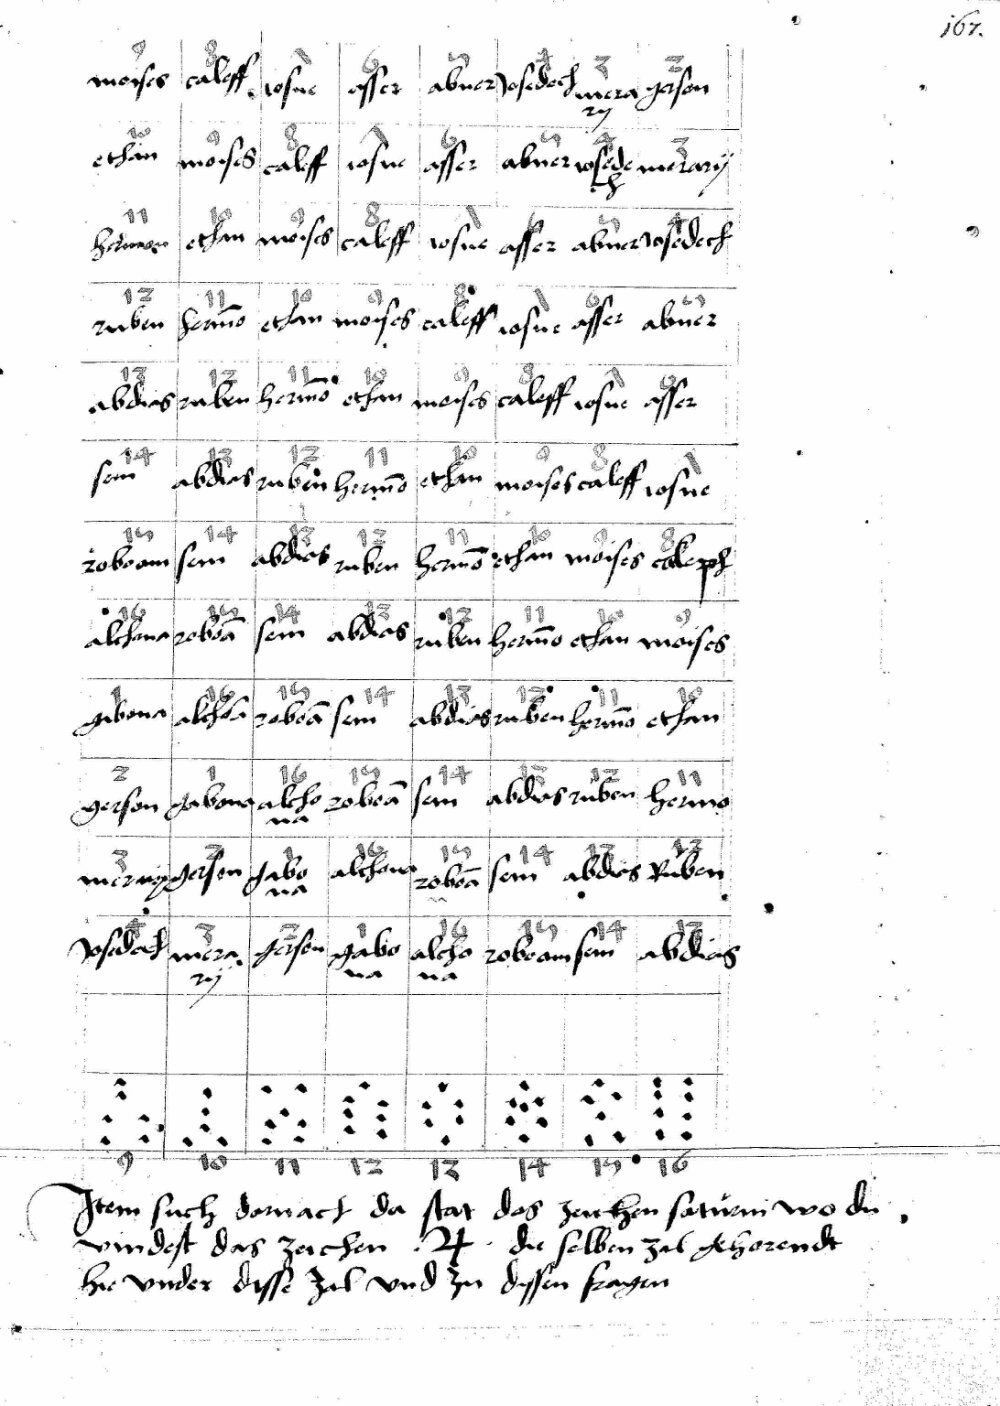 167.
9 8 7 6 5 4 3 2
moises caleff iosue asser abner Josedech mera gerson
rij
10 9 8 7 6 5 4 3
ethan moises caleff iosue asser abner iosede merarij
ch
11 10 9 8 7 6 5 4
hermon ethan moises caleff iosue asser abner iosedech
12 11 10 9 8 7 6 5
ruben hermō ethan moises caleff iosue asser abner
13 12 11 10 9 8 7 6
abdias ruben hermō ethan moises caleff iosue asser
14 13 12 11 10 9 8 7
sem abdias ruben hermō ethan moises caleff iosue
15 14 13 12 11 10 9 8
roboam sem abdias ruben hermō ethan moises caleph
16 15 14 13 12 11 10 9
alchona roboā sem abdias ruben hermō ethan moises
1 16 15 14 13 12 11 10
gabona alchōa roboā sem abdias ruben hermō ethan
2 1 16 15 14 13 12 11
gerson gabona alcho roboā sem abdias ruben hermo
na
3 2 1 16 15 14 13 12
merarij gerson gabo alchona roboā sem abdias Ruben
na
4 3 2 1 16 15 14 13
Josedech mera gerson gabo alcho roboam sem abdias
rij na na
9 10 11 12 13 14 15 16
Item such dornach da stat das zeichen saturni wo du
vindest das zeichen . ♃ . die selben zal gehorendt
hie vnder disse zal vnd zu dissen fragen